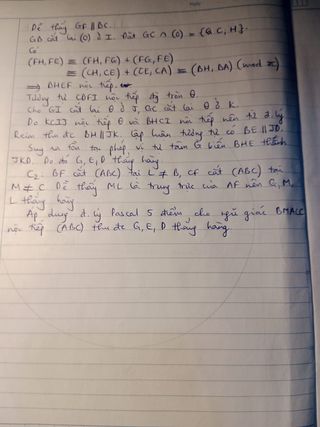 Dễ thấy GF ∥ BC.
GD cắt lại (O) ở I. Đặt GC ∩ (O) = {C, H}.
G
(FH, FE) ≡ (FH, FG) + (FG, FE)
≡ (CH, CE) + (CE, CA) ≡ (BH, BA) (mod π)
⟹ BHEF nội tiếp.
Tương tự CDFI nội tiếp đtròn θ.
Cho GI cắt lại θ ở J, GC cắt lại θ ở K.
Do KCIJ nội tiếp θ và BHCI nội tiếp nên từ đ.lý
Reim thu đc BH ∥ JK. Lập luận tương tự có BE ∥ JD.
Suy ra tồn tại phép vị tự tâm G biến BHE thành
JKD. Do đó G, E, D thẳng hàng.
C2: BF cắt (ABC) tại L ≠ B, CF cắt (ABC) tại
M ≠ C. Dễ thấy ML là trung trực của AF nên G, M,
L thẳng hàng
Áp dụng đ.lý Pascal 5 điểm cho ngũ giác BMACL
nội tiếp (ABC) thu đc G, E, D thẳng hàng.